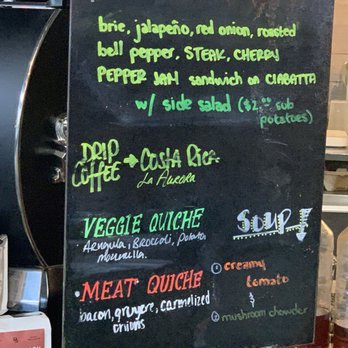 brie, jalapeño, red onion, roasted
bell pepper, STEAK, CHERRY
PEPPER JAM sandwich on CIABATTA
w/ side salad ($2.00 sub
potatoes)
DRIP
COFFEE → COSTA RICA
La Aurora
VEGGIE QUICHE
Arugula, Broccoli, Potato,
MEAT QUICHE
bacon, gruyere, carmelized
onions
SOUP
① creamy
tomato
&
② mushroom chowder